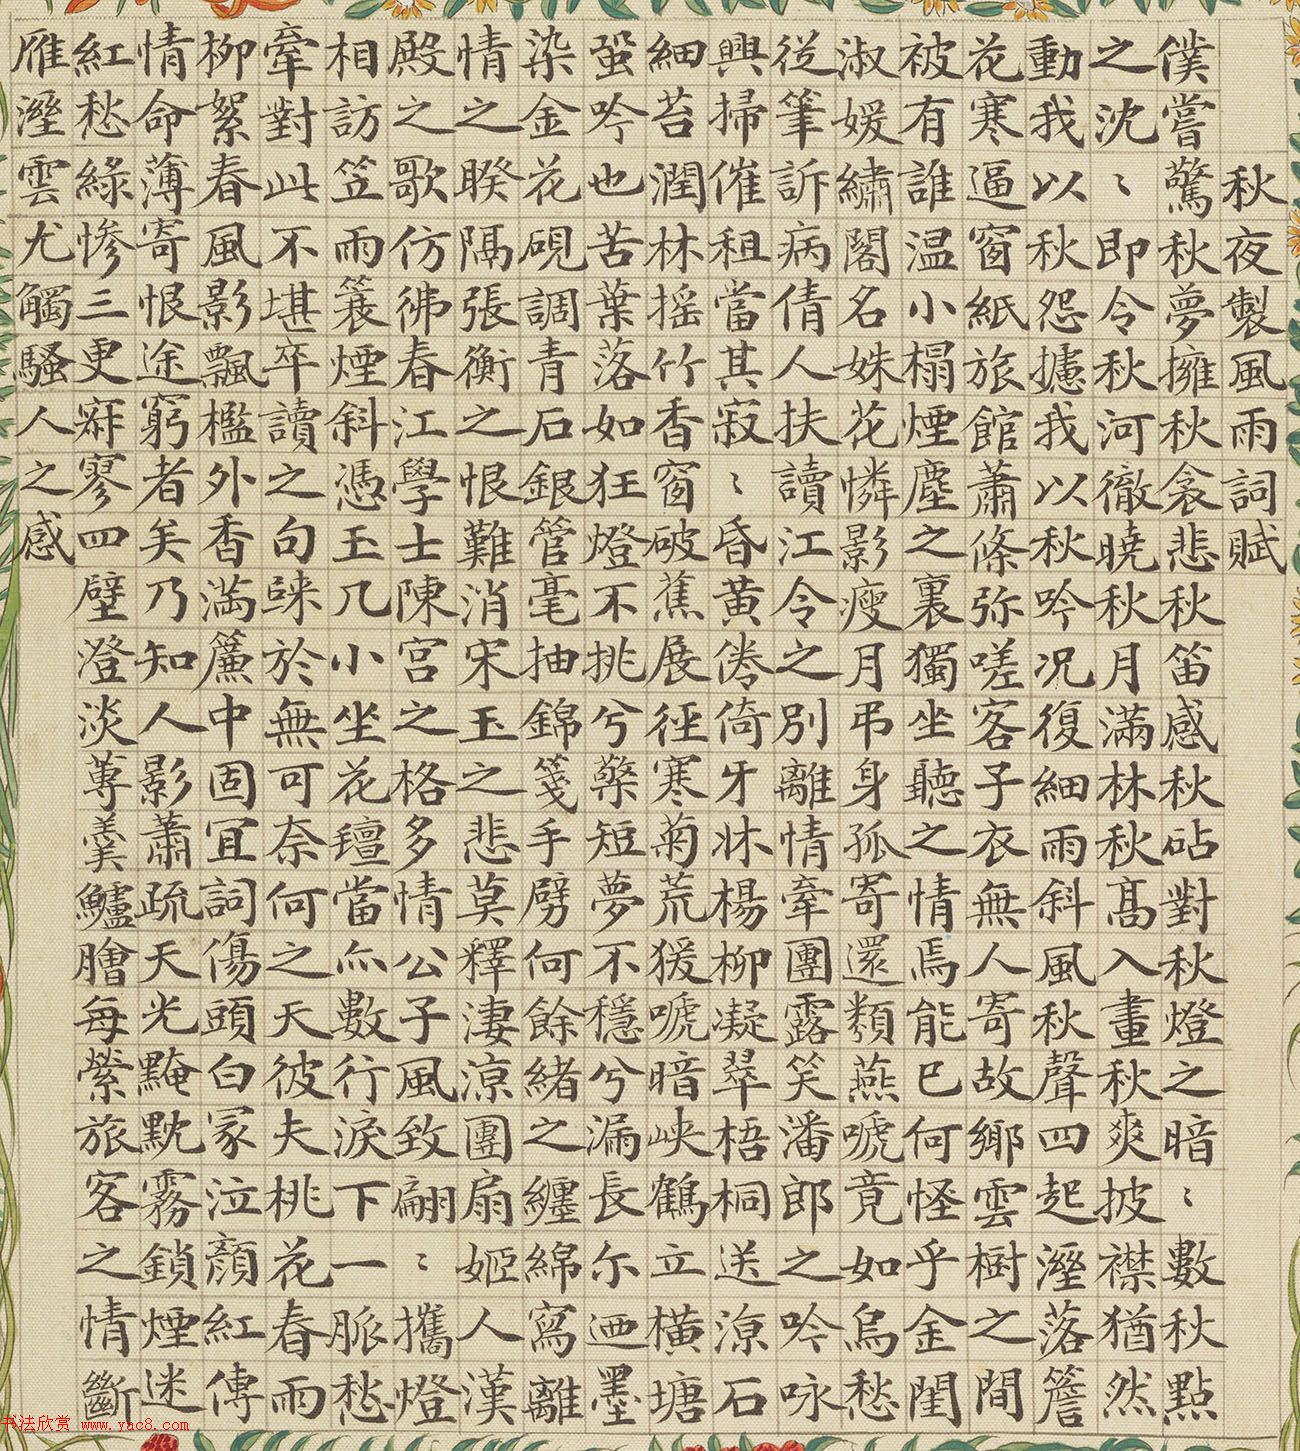 秋夜製風雨詞賦
僕嘗驚秋夢擁秋衾悲秋笛感秋砧對秋燈之暗〻數秋點
之沈〻即令秋河徹曉秋月滿林秋髙入畫秋爽披襟猶然
動我以秋怨攄我以秋吟况復細雨斜風秋聲四起溼落簷
花寒逼窗紙旅館蕭條弥嗟客子衣無人寄故鄉雲樹之間
被有誰温小榻煙塵之裏獨坐聽之情焉能已何怪乎金閨
淑媛繡閣名姝花憐影瘦月弔身孤寄還類燕唬竟如烏愁
從筆訴病倩人扶讀江令之別離情牽團露笑潘郎之吟咏
興掃催租當其寂〻昏黃倦倚牙牀楊柳凝翠梧桐送涼石
細苔潤林摇竹香窗破蕉展徑寒菊荒猨唬暗峽鶴立橫塘
蛩吟也苦葉落如狂燈不挑兮檠短夢不穩兮漏長尔迺墨
染金花硯調青石銀管毫抽錦箋手劈何餘緒之纏綿寫離
情之暌隔張衡之恨難消宋玉之悲莫釋淒涼團扇姬人漢
殿之歌仿彿春江學士陳宮之格多情公子風致翩〻攜燈
相訪笠雨簑煙斜憑玉几小坐花氊當亦數行淚下一脈愁
牽對此不堪卒讀之句於無可奈何之天彼夫桃花春雨
柳絮春風影飄檻外香滿簾中固宜詞傷頭白冢泣顏紅傳
情命薄寄恨途窮者矣乃知人影蕭疏天光黤黕霧鎖煙迷
紅愁綠慘三更寂寥四壁澄淡蓴羹鱸膾每縈旅客之情斷
雁溼雲尤觸騷人之感
书法欣赏 www.yac8.com